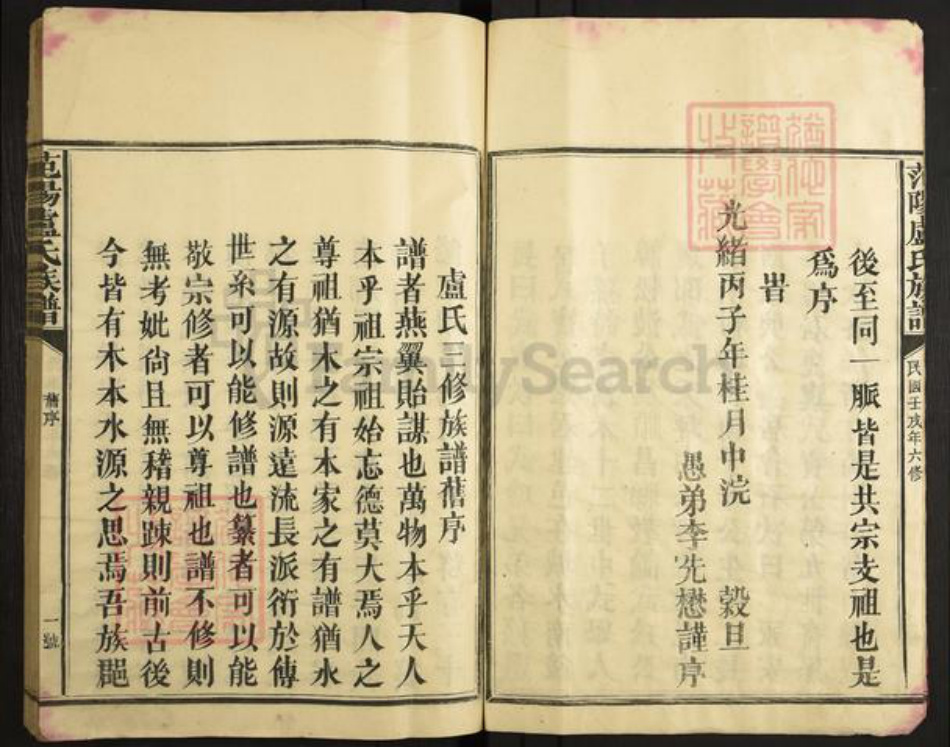 范陽盧氏族譜
民國壬戌年六修
後至同一脈皆是共宗支祖也是
為序
旹
光緒丙子年桂月中浣　穀旦
愚弟李先懋謹序
盧氏三修族譜舊序
譜者燕翼貽謀也萬物本乎天人
本乎祖宗祖始忘德莫大焉人之
尊祖猶木之有本家之有譜猶水
之有源故則源遠流長派衍於傳
世系可以能修譜也纂者可以能
敬宗修者可以尊祖也譜不修則
無考妣尙且無稽親踈則前古後
今皆有木本水源之思焉吾族
范陽盧氏族譜
舊序
一號
FamilySearch